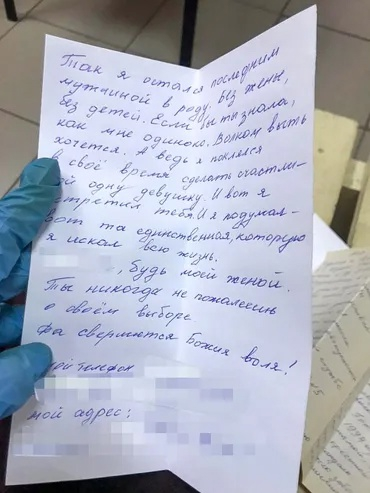 Так я остался последним
мужчиной в роду. Без жены,
без детей. Если бы ты знала,
как мне одиноко. Волком выть
хочется. А ведь я поклялся
в своё время сделать счастли-
ой одну девушку. И вот я
стретил тебя. И я подумал -
вот та единственная, которую
я искал всю жизнь.
, будь моей женой.
Ты никогда не пожалеешь
о своём выборе
Да свершится Божия воля!
ой телефон
мой адрес: